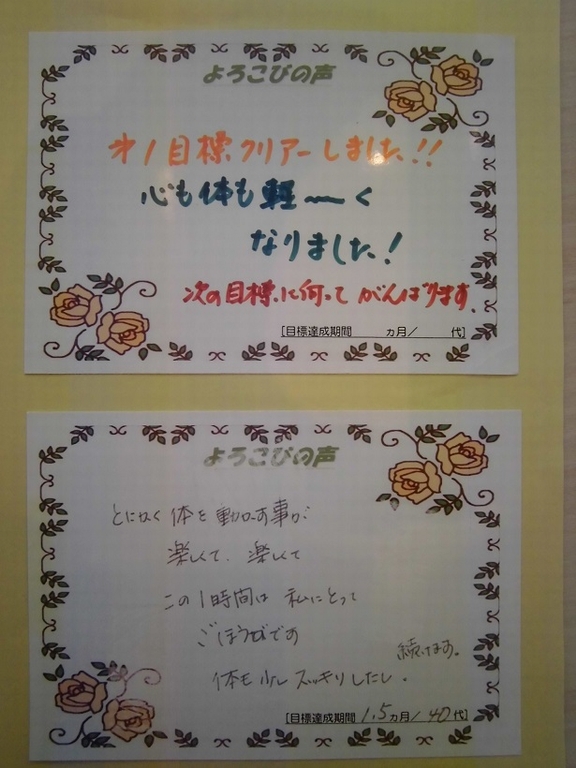 よろこびの声
才1目標クリアーしました!!
心も体も軽〜く
なりました!
次の目標に向って がんばります。
[目標達成期間 カ月/ 代]
よろこびの声
とにかく 体を 動かす事が
楽しくて、楽しくて
この1時間は 私にとって
ごほうびです
続けます。
体も少し スッキリしたし。
[目標達成期間 1.5 カ月/ 40代]